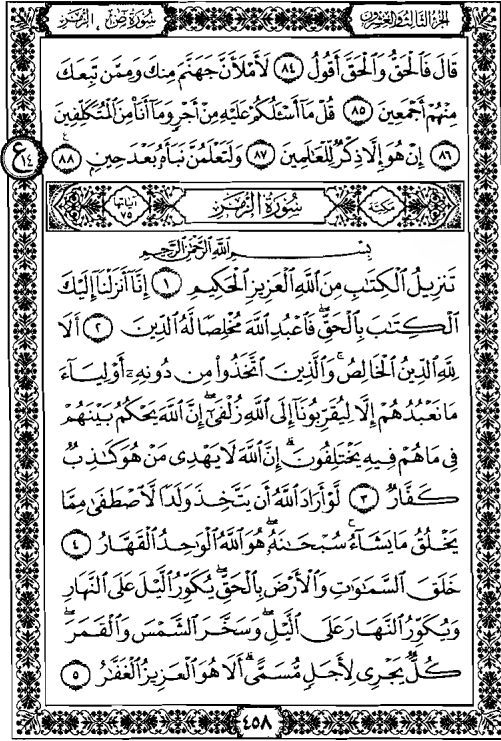 سُورَةُ صٓ ، الزُّمَرِ
الجُزْءُ الثَّالِثُ وَالعِشْرُون
قَالَ فَٱلْحَقُّ وَٱلْحَقَّ أَقُولُ ٨٤ لَأَمْلَأَنَّ جَهَنَّمَ مِنكَ وَمِمَّن تَبِعَكَ
مِنْهُمْ أَجْمَعِينَ ٨٥ قُلْ مَآ أَسْـَٔلُكُمْ عَلَيْهِ مِنْ أَجْرٍ وَمَآ أَنَا۠ مِنَ ٱلْمُتَكَلِّفِينَ
٨٦ إِنْ هُوَ إِلَّا ذِكْرٌ لِّلْعَـٰلَمِينَ ٨٧ وَلَتَعْلَمُنَّ نَبَأَهُۥ بَعْدَ حِينٍۭ ٨٨
ع ١٤
مكية
سُورَةُ الزُّمَرِ
آياتها ٧٥
بِسْمِ ٱللَّهِ ٱلرَّحْمَـٰنِ ٱلرَّحِيمِ
تَنزِيلُ ٱلْكِتَـٰبِ مِنَ ٱللَّهِ ٱلْعَزِيزِ ٱلْحَكِيمِ ١ إِنَّآ أَنزَلْنَآ إِلَيْكَ
ٱلْكِتَـٰبَ بِٱلْحَقِّ فَٱعْبُدِ ٱللَّهَ مُخْلِصًا لَّهُ ٱلدِّينَ ٢ أَلَا
لِلَّهِ ٱلدِّينُ ٱلْخَالِصُ ۚ وَٱلَّذِينَ ٱتَّخَذُوا۟ مِن دُونِهِۦٓ أَوْلِيَآءَ
مَا نَعْبُدُهُمْ إِلَّا لِيُقَرِّبُونَآ إِلَى ٱللَّهِ زُلْفَىٰٓ ۖ إِنَّ ٱللَّهَ يَحْكُمُ بَيْنَهُمْ
فِى مَا هُمْ فِيهِ يَخْتَلِفُونَ ۗ إِنَّ ٱللَّهَ لَا يَهْدِى مَنْ هُوَ كَـٰذِبٌ
كَفَّارٌ ٣ لَّوْ أَرَادَ ٱللَّهُ أَن يَتَّخِذَ وَلَدًا لَّٱصْطَفَىٰ مِمَّا
يَخْلُقُ مَا يَشَآءُ ۚ سُبْحَـٰنَهُۥ ۖ هُوَ ٱللَّهُ ٱلْوَٰحِدُ ٱلْقَهَّارُ ٤
خَلَقَ ٱلسَّمَـٰوَٰتِ وَٱلْأَرْضَ بِٱلْحَقِّ ۖ يُكَوِّرُ ٱلَّيْلَ عَلَى ٱلنَّهَارِ
وَيُكَوِّرُ ٱلنَّهَارَ عَلَى ٱلَّيْلِ ۖ وَسَخَّرَ ٱلشَّمْسَ وَٱلْقَمَرَ ۖ
كُلٌّ يَجْرِى لِأَجَلٍ مُّسَمًّى ۗ أَلَا هُوَ ٱلْعَزِيزُ ٱلْغَفَّـٰرُ ٥
٤٥٨